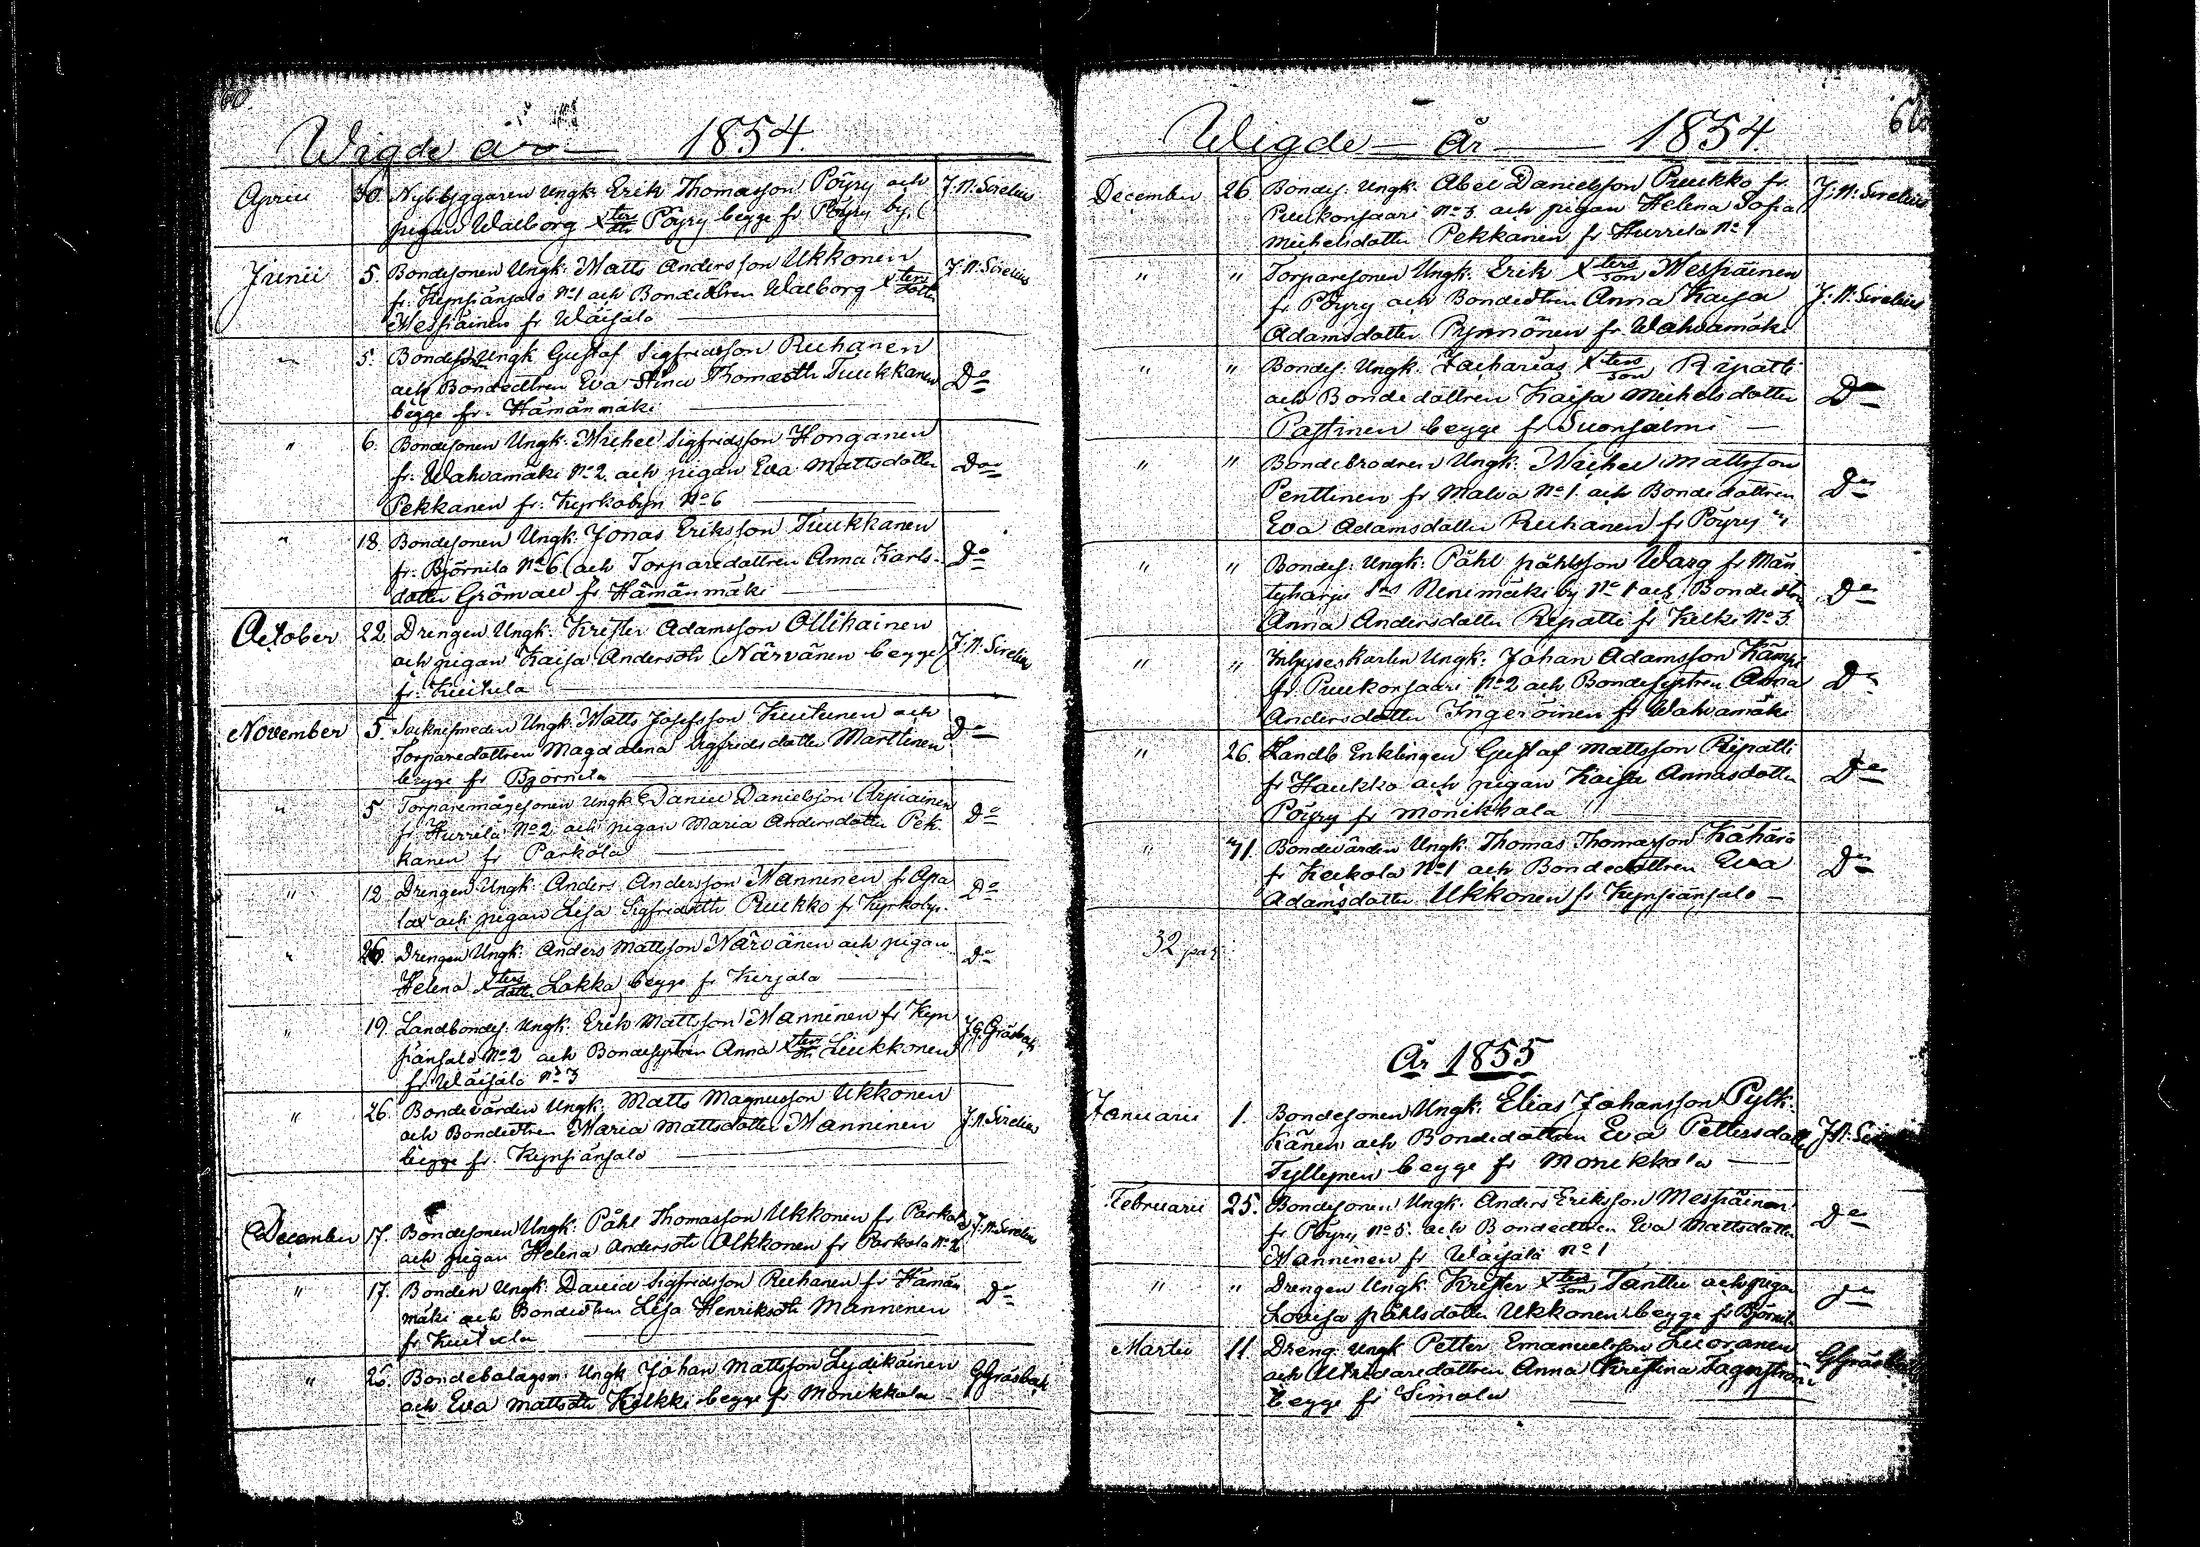 60.
Wigde år — 1854.
Aprill 30. Nybyggaren Ungk. Erik Thomasson Pöyry och J. N. Sirelius
pigan Walborg Xters dtr Pöyry begge fr Pöyry by.
Junii 5. Bondesonen Ungk. Matts Andersson Ukkonen J. N. Sirelius
fr. Kynsiänsalo No 1 och Bondedtren Walborg Xters dotter
Messiäinen fr Wäisälo
" 5. Bondeson Ungk. Gustaf Sigfridsson Ruhanen
och Bondedtren Eva Stina Thomasdtr Tuukkanen Do
begge fr. Hämänmäki
" 6. Bondesonen Ungk. Michel Sigfridsson Honganen
fr. Wahvamäki No 2. och pigan Eva Mattsdotter Do
Pekkanen fr. Kyrkobyn No 6
" 18. Bondesonen Ungk. Jonas Eriksson Tuukkanen
fr. Björnila No 6 och Torparedottren Anna Karls- Do
dotter Grönvall fr Hämänmäki
October 22. Drengen Ungk. Krister Adamsson Ollikainen
och pigan Kaisa Andersdtr Närvänen begge J. N. Sirelius
fr. Kuitula
November 5. Sockensmeden Ungk. Matts Josefsson Kuutunen och Do
Torparedottren Magdalena Sigfridsdotter Marttinen
begge fr Björnila
" 5 Torparemågesonen Ungk. Daniel Danielsson Arpiainen
fr Hurrila No 2 och pigan Maria Andersdotter Pek- Do
kanen fr Parkola
" 12 Drengen Ungk. Anders Andersson Manninen fr Apa Do
lax och pigan Lisa Sigfridsdtr Ruukko fr Kyrkobyn.
" 26. Drengen Ungk. Anders Mattsson Närvänen och pigan Do
Helena Xters dotter Lakka begge fr Kirjala
" 19. Landbondes. Ungk. Erik Mattsson Manninen fr Kyn J. G. Gråsbeck
siänsalo No 2 och Bondesystren Anna Xters dtr Liukkonen
fr Wäisälo No 3
" 26. Bondevärden Ungk. Matts Magnusson Ukkonen
och Bondedtren Maria Mattsdotter Manninen J. N. Sirelius
begge fr. Kynsiänsalo
December 17. Bondesonen Ungk. Påhl Thomasson Ukkonen fr Parkola J. N. Sirelius
och pigan Helena Andersdtr Ukkonen fr Parkola No 2
" 17. Bonden Ungk. David Sigfridsson Ruhanen fr Hämän
mäki och Bondedtren Lisa Henriksdtr Manninen Do
fr Kuitula
" 26. Bondebolagsm. Ungk. Johan Mattsson Lydikäinen G Gråsbeck
och Eva Mattsdtr Kälkki begge fr Monikkala
Wigde — År — 1854.
December 26 Bondes. Ungk. Abel Danielsson Ruukko fr. J. N. Sirelius
Ruukonsaari No 3 och pigan Helena Sofia
Michelsdotter Pekkanen fr Hurrila No 1
" " Torparesonen Ungk. Erik Xters son Messiäinen
fr Pöyry och Bondedtren Anna Kaisa J. N. Sirelius
Adamsdotter Pynnönen fr Wahvamäki
" " Bondes. Ungk. Zacharias Xters son Ripatti
och Bondedottren Kaisa Michelsdotter Do
Pastinen begge fr Suonsalmi
" " Bondebrodren Ungk. Michel Mattsson
Penttinen fr Malva No 1 och Bondedottren Do
Eva Adamsdotter Ruhanen fr Pöyry
" " Bondes. Ungk. Påhl Påhlsson Warg fr Män
tyharju Sns Nenimäki by No 1 och Bondedtren Do
Anna Andersdotter Ripatti fr Kilki No 3.
" " Inhyseskarlen Ungk. Johan Adamsson Kämpi
fr Ruukonsaari No 2 och Bondesystren Anna Do
Andersdotter Ingeröinen fr Wahvamäki
" 26. Landb. Enklingen Gustaf Mattsson Ripatti
fr Haukko och pigan Kaisa Annasdotter Do
Pöyry fr Monikkala
" 31. Bondevärden Ungk. Thomas Thomasson Kähärä
fr Keikola No 1 och Bondedottren Eva Do
Adamsdotter Ukkonen fr Kynsiänsalo —
32 par
År 1855
Januarii 1. Bondesonen Ungk. Elias Johansson Pylk-
känen och Bondedottren Eva Pettersdotter J. N.
Tyllynen begge fr Monikkala
Februarii 25. Bondesonen Ungk. Anders Eriksson Messiäinen
fr Pöyry No 5. och Bondedtren Eva Mattsdotter Do
Manninen fr Wäisälä No 1
" " Drengen Ungk. Krister Xters son Tanttu och pigan Do
Lovisa Påhlsdotter Ukkonen begge fr Björnila
Martii 11. Dreng. Ungk. Petter Emanuelsson Luoranen
och Anna Kristina Fagerström G Gråsbeck
begge fr Simola